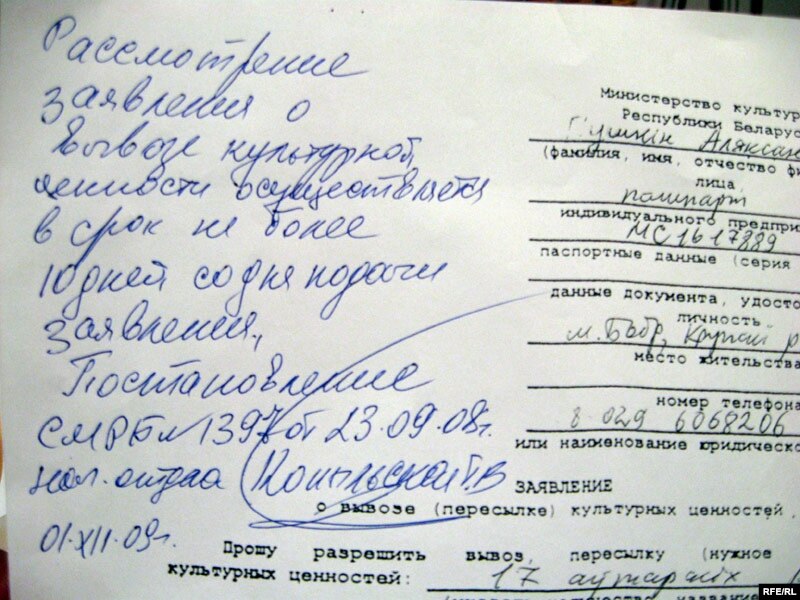 Рассмотрение
заявления о
вывозе культурной
ценности осуществляется
в срок не более
10 дней со дня подачи
заявления,
Постановление
СМРБ № 1397 от 23.09.08г.
нач. отдела Копыльской Т.В
01.XII.09г.
Министерство культур
Республики Беларус
Пушкін Аляксан
(фамилия, имя, отчество фи
лица,
пашпарт
индивидуального предпри
МС1617889
паспортные данные (серия
данные документа, удосто
личность,
м. Бобр, Крупскі р
место жительства
номер телефона
8 029 6068206
или наименование юридическо
ЗАЯВЛЕНИЕ
о вывозе (пересылке) культурных ценностей,
Прошу разрешить вывоз, пересылку (нужное
культурных ценностей: 17 аўтарскіх
RFE/RL